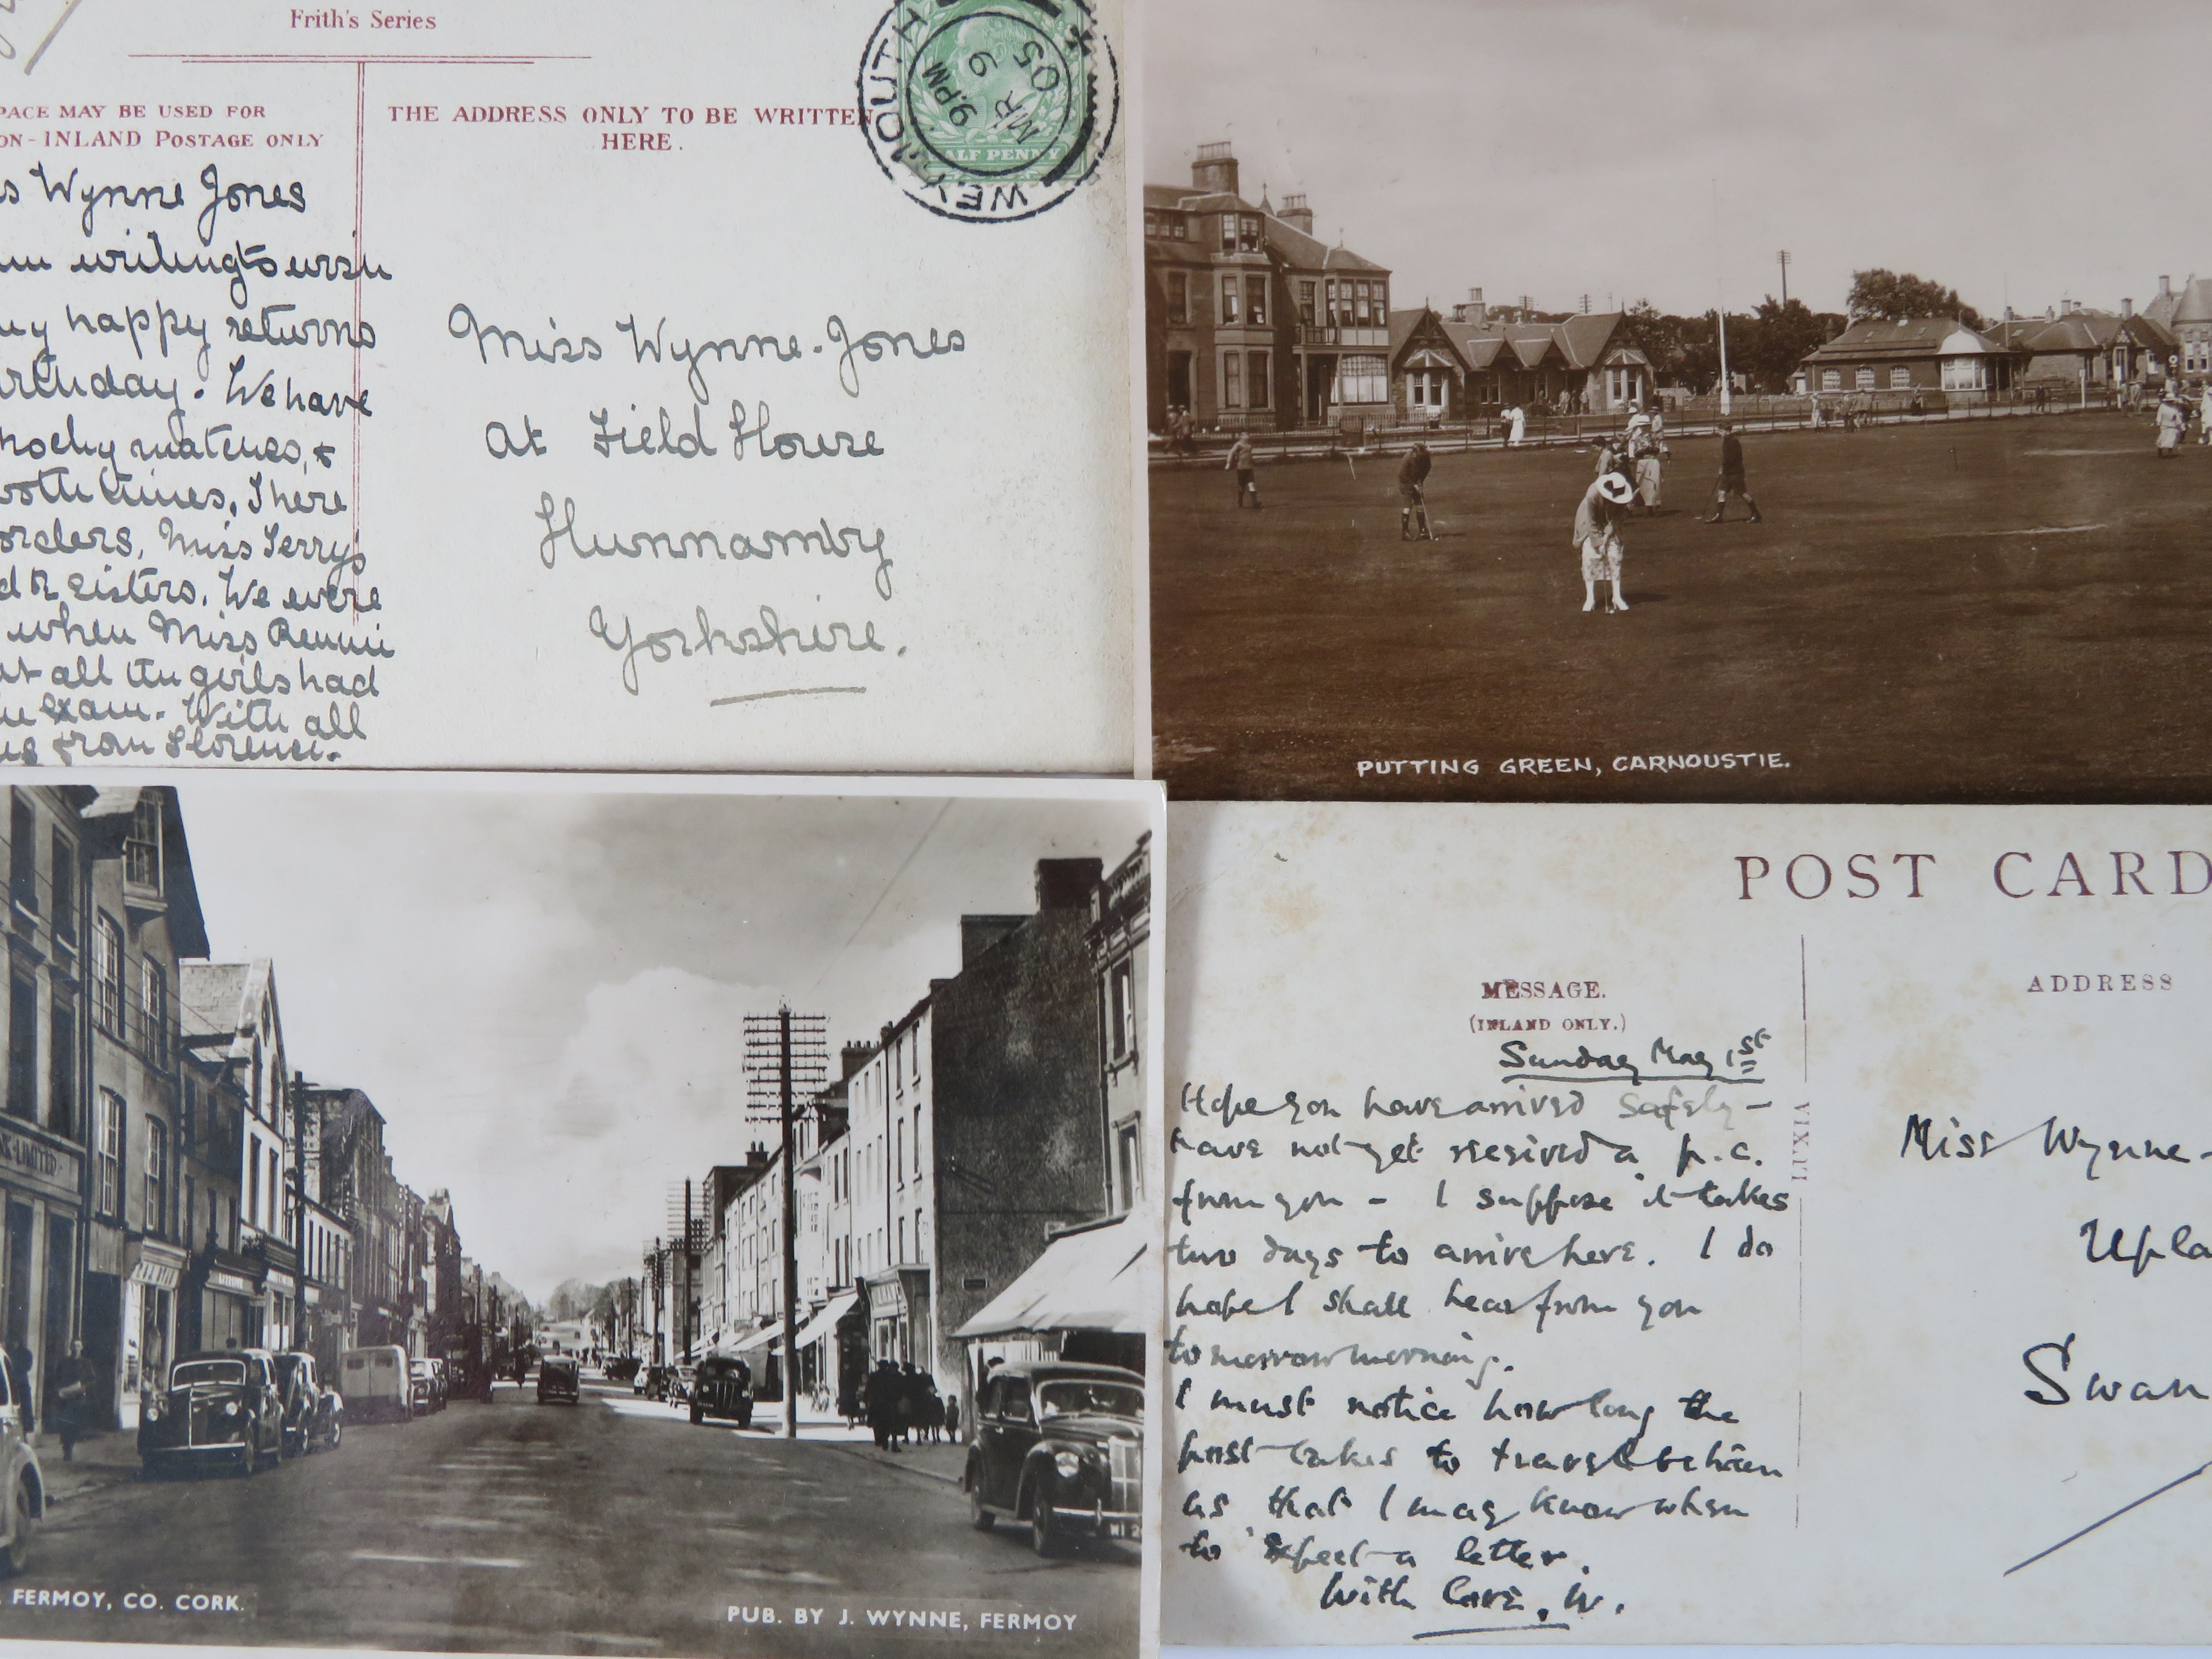 Frith's Series
PACE MAY BE USED FOR
ON-INLAND POSTAGE ONLY
THE ADDRESS ONLY TO BE WRITTEN
HERE.
WEYMOUTH
9.PM
MR 9
05
HALF PENNY
s Wynne Jones
writing to wish
happy returns
birthday. We have
hocky matches, &
both times, There
orders, Miss Terry's
& sisters. We were
when Miss Rennie
all the girls had
exam. With all
from Florence.
Miss Wynne-Jones
At Field House
Hunnamby
Yorkshire.
PUTTING GREEN, CARNOUSTIE.
K LIMITED
FERMOY, CO. CORK.
PUB. BY J. WYNNE, FERMOY
POST CARD
MESSAGE.
(INLAND ONLY.)
ADDRESS
Sunday May 1st
Hope you have arrived safely -
have not yet received a p.c.
from you - I suppose it takes
two days to arrive here. I do
hope I shall hear from you
tomorrow morning.
I must notice how long the
post takes to travel between
us that I may know when
to expect a letter.
With love, W.
Miss Wynne-
Upla
Swan